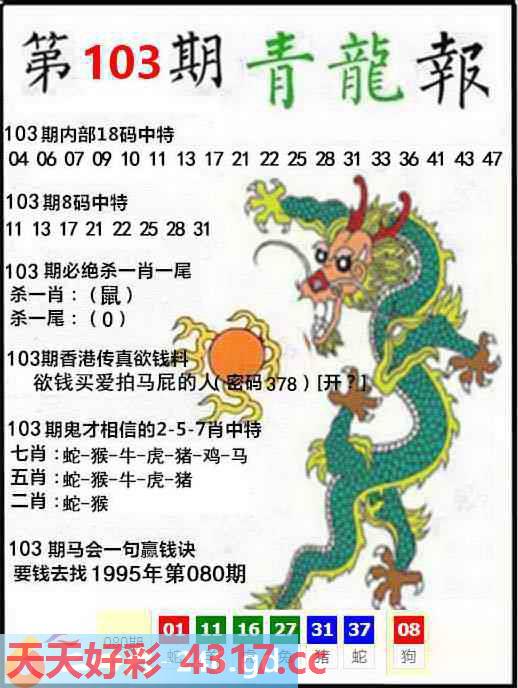 第103期 青龍報
103期内部18码中特
04 06 07 09 10 11 13 17 21 22 25 28 31 33 36 41 43 47
103期8码中特
11 13 17 21 22 25 28 31
103期必绝杀一肖一尾
杀一肖：（鼠）
杀一尾：（0）
103期香港传真欲钱料
欲钱买爱拍马屁的人(密码378）[开？]
103期鬼才相信的2-5-7肖中特
七肖：蛇-猴-牛-虎-猪-鸡-马
五肖：蛇-猴-牛-虎-猪
二肖：蛇-猴
103期马会一句赢钱诀
要钱去找1995年第080期
01 11 16 27 31 37 08
080期 蛇 兔 猪 蛇 狗
天天好彩 4317.cc